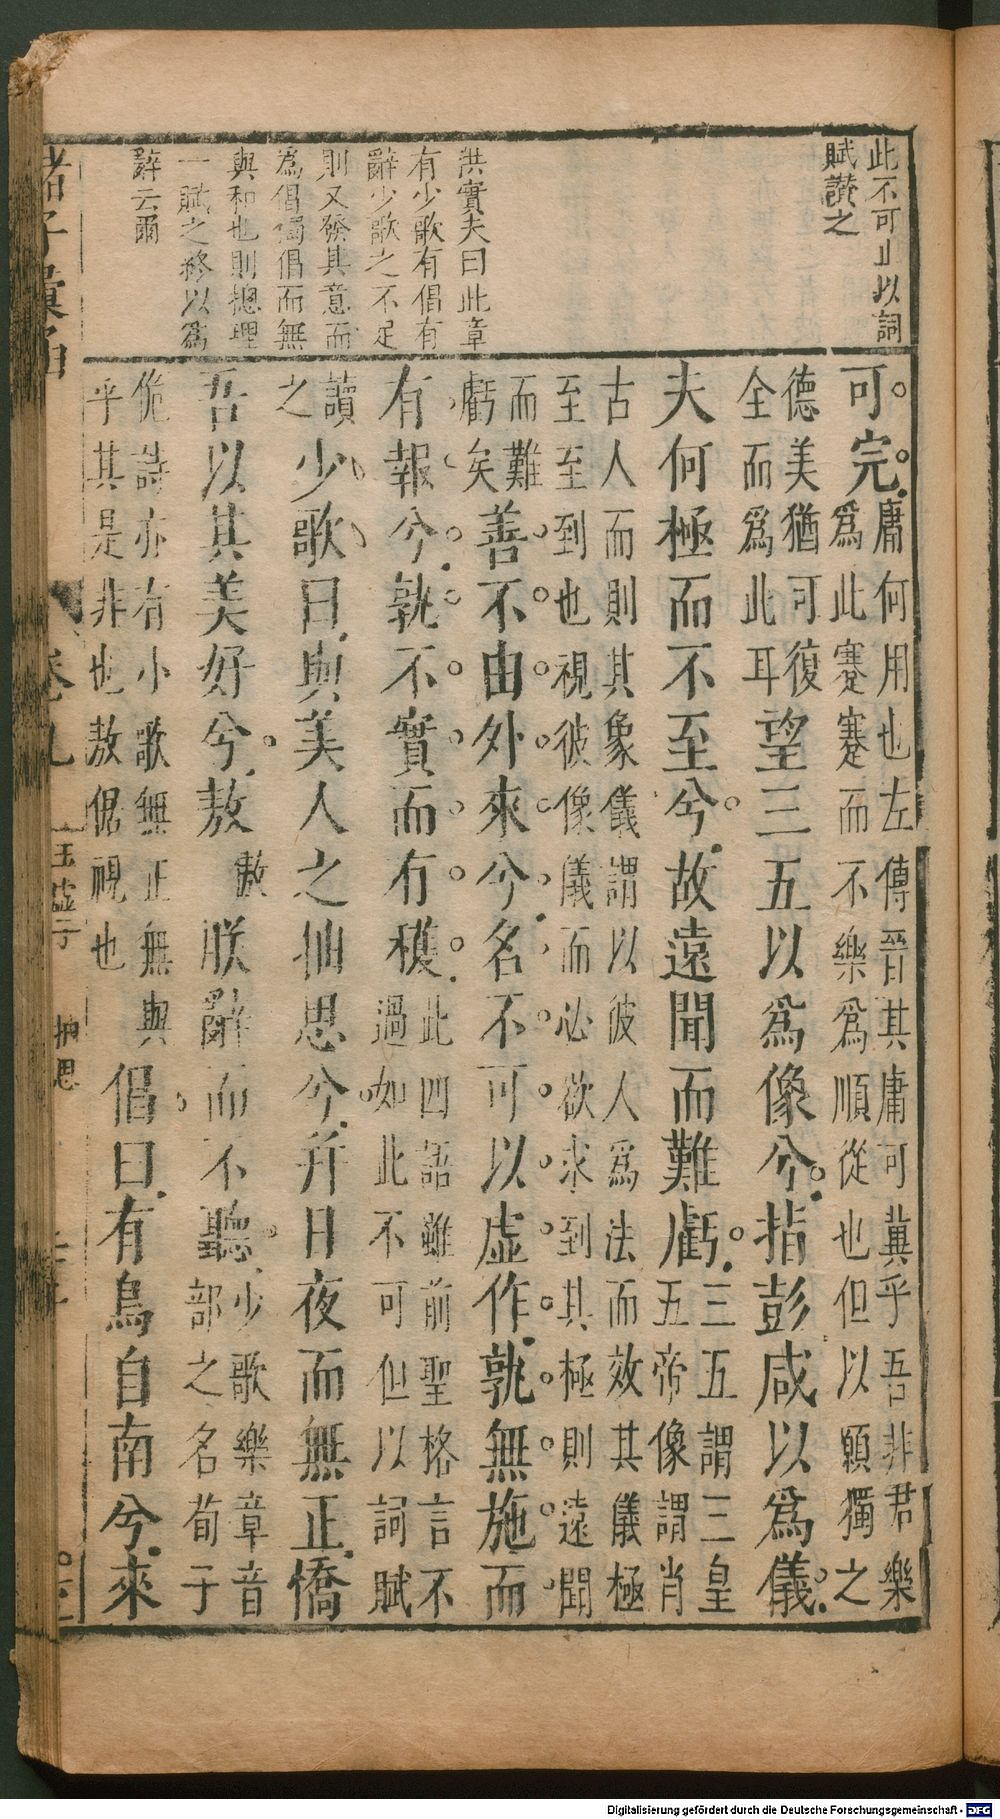 此不可止以詞
賦讚之
洪實夫曰此章
有少歌有倡有
辭少歌之不足
則又發其意而
為倡獨倡而無
與和也則摠理
一賦之終以為
辭云爾
可完庸何用也左傳晉其庸可冀乎吾非君樂
爲此蹇蹇而不樂爲順從也但以願獨之
德美猶可復
全而爲此耳望三五以爲像兮指彭咸以爲儀
夫何極而不至兮故遠聞而難虧三五謂三皇
五帝像謂肖
古人而則其象儀謂以彼人爲法而效其儀極
至至到也視彼像儀而必欲求到其極則遠聞
而難
虧矣善不由外來兮名不可以虛作孰無施而
有報兮孰不實而有穫此四語雖前聖格言不
過如此不可但以詞賦
讀
之少歌曰與美人之抽思兮并日夜而無正憍
吾以其美好兮敖敖朕辭而不聽少歌樂章音
部之名荀子
佹詩亦有小歌無正無與
乎其是非也敖倨視也倡曰有鳥自南兮來
諸子彙函
卷九
玉虛子
抽思
Digitalisierung gefördert durch die Deutsche Forschungsgemeinschaft - DFG